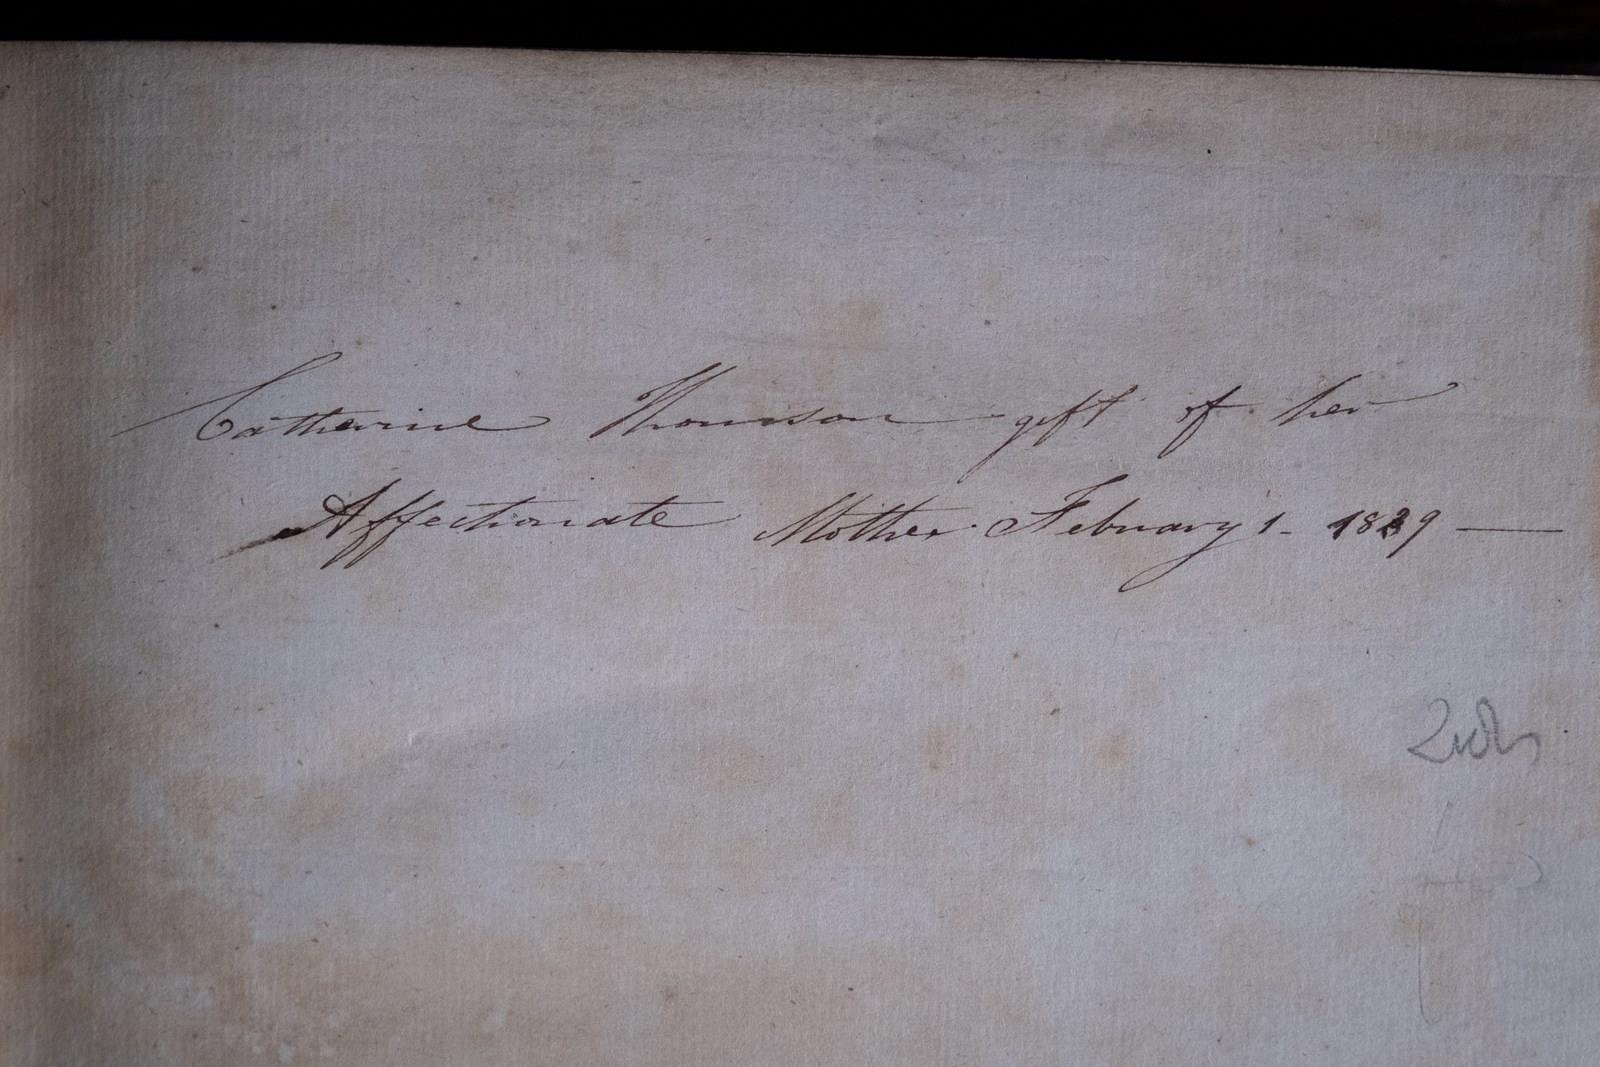 Catherine Thomson gift of her
Affectionate Mother February 1 - 1829 —
2 vols